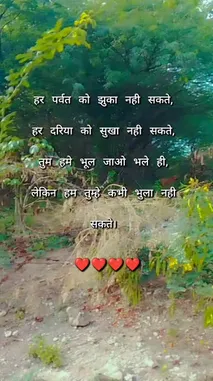 हर पर्वत को झुका नही सकते,
हर दरिया को सुखा नही सकते,
तुम हमे भूल जाओ भले ही,
लेकिन हम तुम्हे कभी भुला नही
सकते।
❤❤❤❤